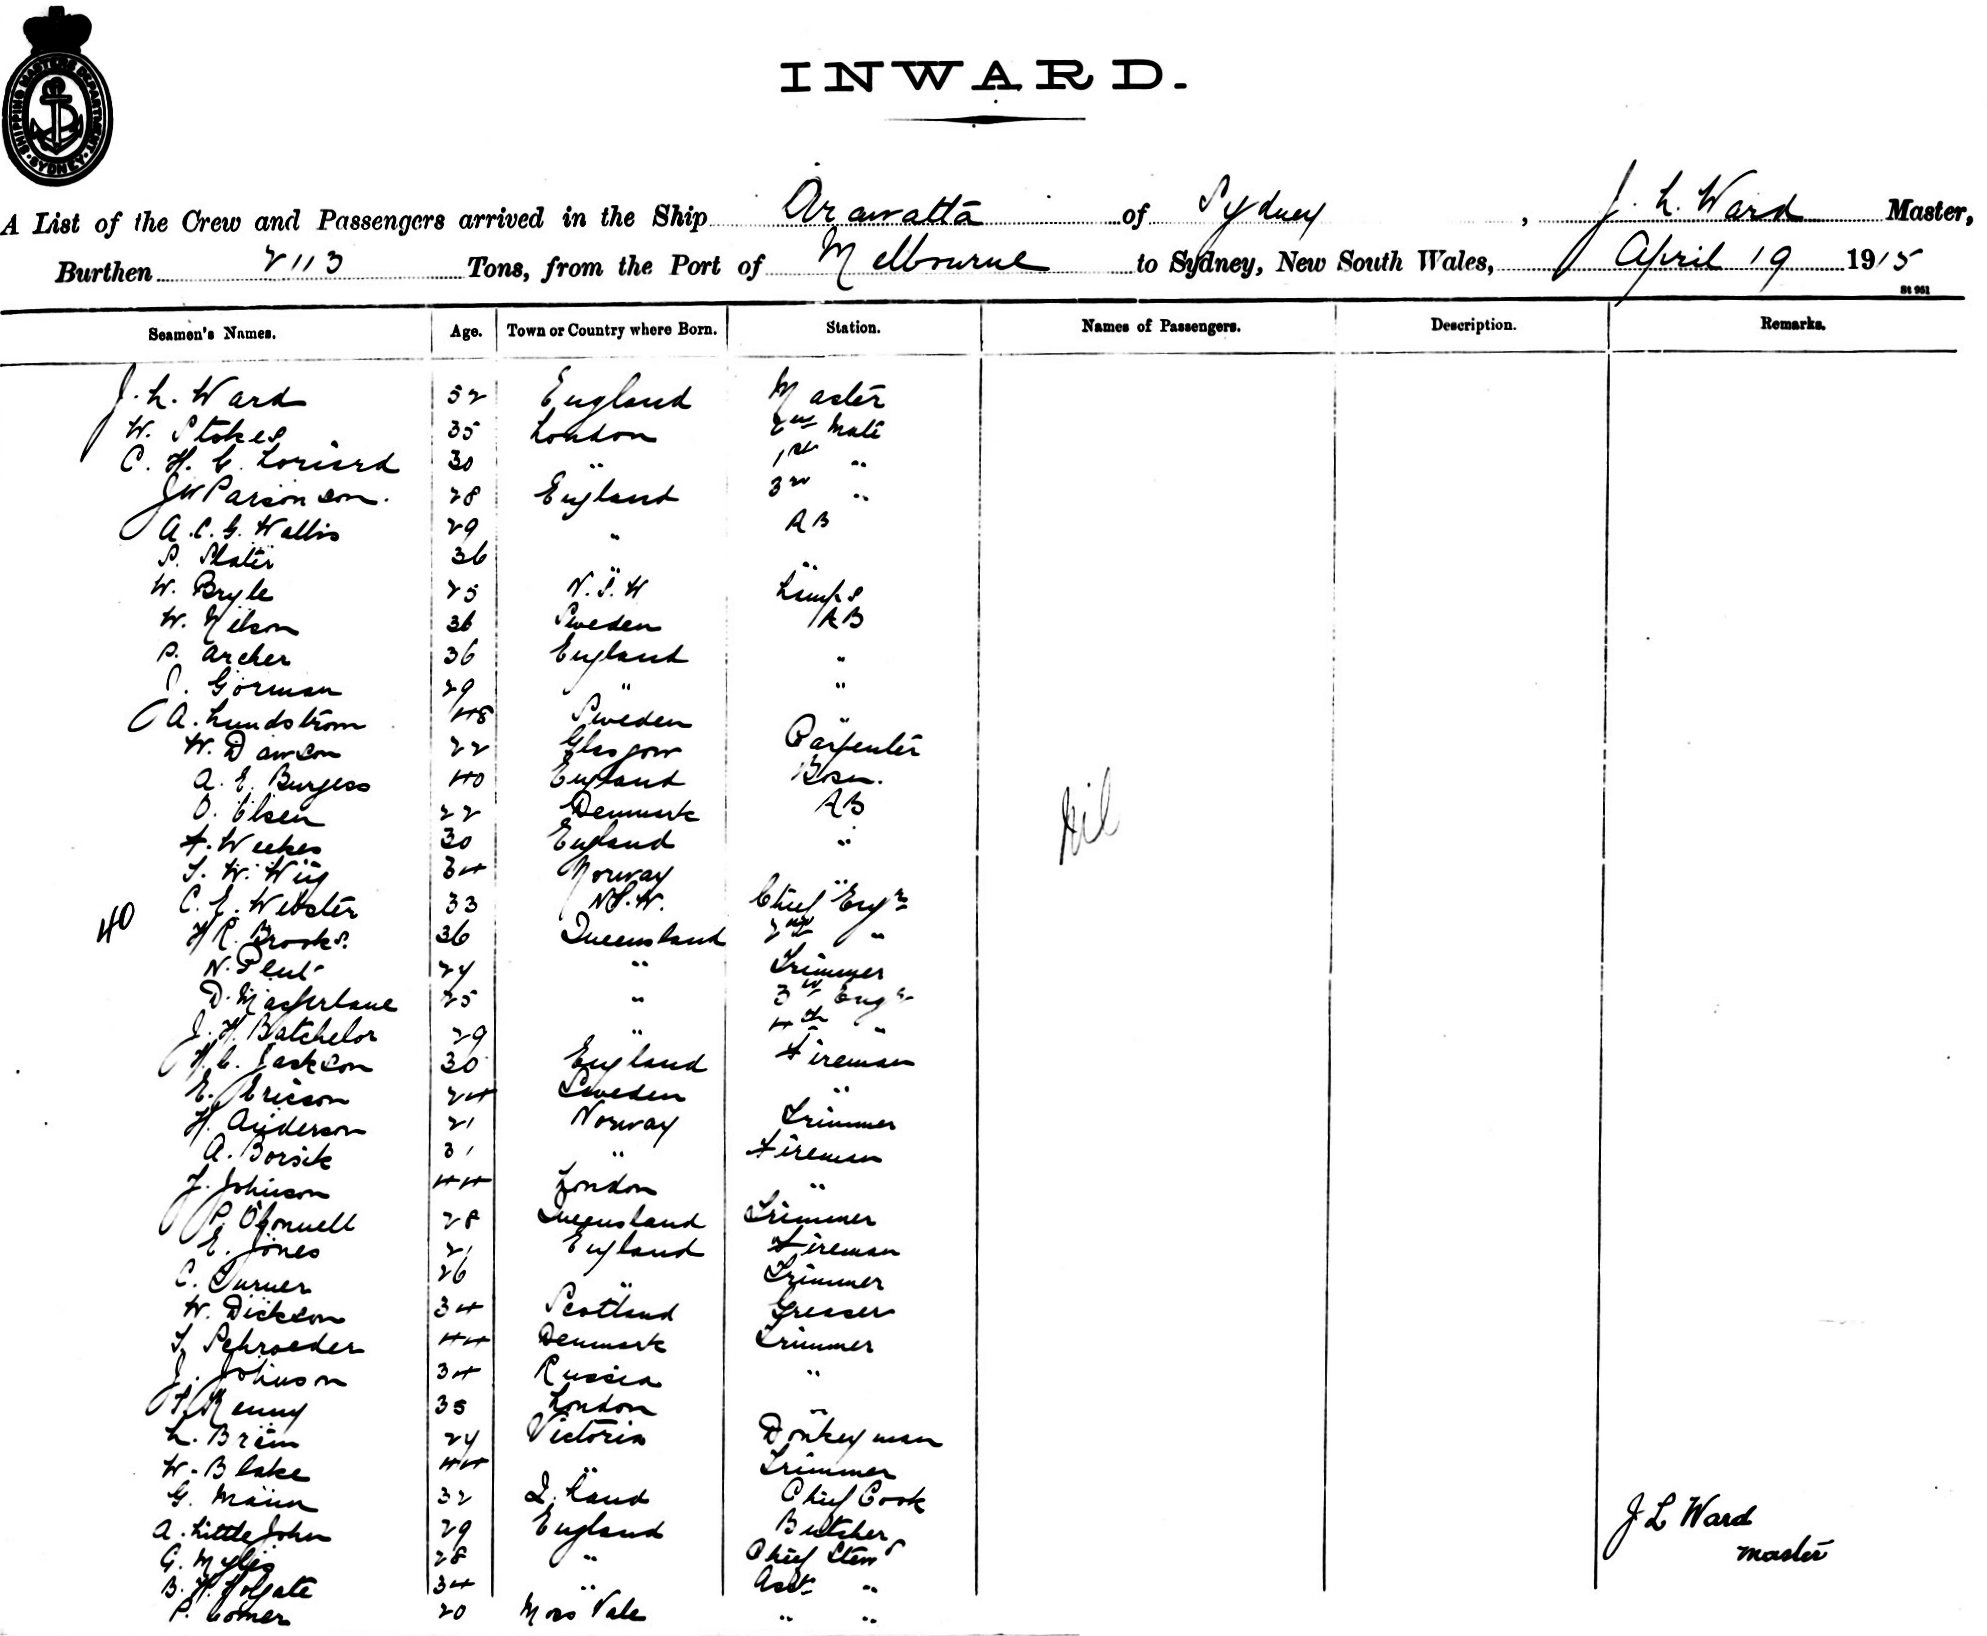 SHIPPING MASTERS DEPARTMENT
SYDNEY
INWARD.
A List of the Crew and Passengers arrived in the Ship Arawatta of Sydney, J. L. Ward Master,
Burthen 2113 Tons, from the Port of Melbourne to Sydney, New South Wales, April 19 1915
St 951
Seamen's Names. Age. Town or Country where Born. Station. Names of Passengers. Description. Remarks.
J. L. Ward 52 England Master
W. Stokes 35 London 2nd Mate
C. H. C. 30 " 1st "
J W Parsonson. 28 England 3rd "
A. C. G. Wallis 29 " AB
S. Slater 36 " "
W. Bryle 25 N.S.W Lamps
W. Nilson 36 Sweden AB
S. Archer 36 England "
J. Gorman 29 " "
A. Lundstrom 48 Sweden "
W. Dawson 22 Glasgow Carpenter
A. E. Burgess 40 England Bosn.
O. Olsen 22 Denmark AB
F. Weekes 30 England "
T. W. Wiig 34 Norway "
C. E. Webster 33 N.S.W. Chief Engr
40
H R. Brooks. 36 Queensland 2nd "
N. 24 " Trimmer
D. Macferlane 25 " 3rd Engr
J. H. Batchelor 29 " 4th "
H. C. Jackson 30 England Fireman
E. Ericson 24 Sweden "
H. Anderson 21 Norway Trimmer
A. Borsik 31 " Fireman
J. Johnson 44 London "
P. O'Connell 28 Queensland Trimmer
E. Jones 21 England Fireman
C. Turner 26 " Trimmer
W. Dickson 34 Scotland Greaser
T. Schroeder 44 Denmark Trimmer
J. Johnson 34 Russia "
T. Kenny 35 London "
L. Brein 24 Victoria Donkeyman
W. Blake 44 " Trimmer
G. Mann 32 Q. Land Chief Cook
A. LittleJohn 29 England Butcher
G. Myles 28 " Chief Stewd
B. H. Holgate 34 " Asst "
P. Comer 20 Moss Vale " "
Nil
J L Ward
Master